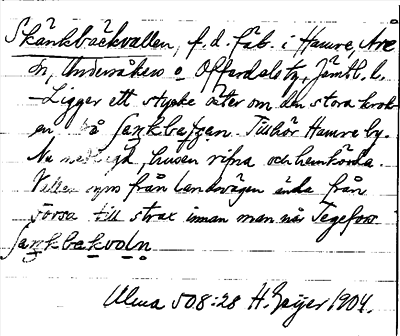 Skänkbäckvallen, f.d. fäb. i Hamre, Åre
sn, Undersåkers o. Offerdals tg, Jämtl. l.
Ligger ett stycke öster om den stora krok-
en på Tillhör Hamre by.
Nu nedlagd, husen rifna och hemkörda.
Vallen syns från landsvägen ända från
till strax innan man når Tegefors
Ulma 508:28 H. Geijer 1904.